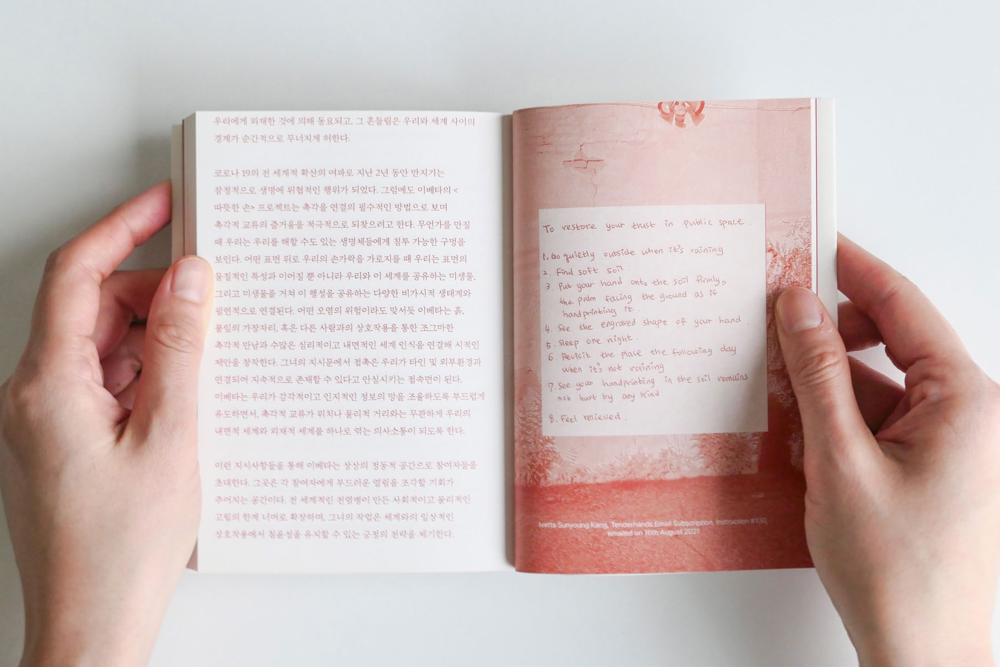 우리에게 외재한 것에 의해 동요되고, 그 흔들림은 우리와 세계 사이의
경계가 순간적으로 무너지게 허한다.
코로나 19의 전 세계적 확산의 여파로 지난 2년 동안 만지기는
잠정적으로 생명에 위협적인 행위가 되었다. 그럼에도 이베타의 <
따뜻한 손> 프로젝트는 촉각을 연결의 필수적인 방법으로 보며
촉각적 교류의 즐거움을 적극적으로 되찾으려고 한다. 무언가를 만질
때 우리는 우리를 해할 수도 있는 생명체들에게 침투 가능한 구멍을
보인다. 어떤 표면 위로 우리의 손가락을 가로지를 때 우리는 표면의
물질적인 특성과 이어질 뿐 아니라 우리와 이 세계를 공유하는 미생물,
그리고 미생물을 거쳐 이 행성을 공유하는 다양한 비가시적 생태계와
필연적으로 연결된다. 어떤 오염의 위험이라도 맞서듯 이베타는 흙,
물일의 가장자리, 혹은 다른 사람과의 상호작용을 통한 조그마한
촉각적 만남과 수많은 심리적이고 내면적인 세계 인식을 연결해 시적인
제안을 창작한다. 그녀의 지시문에서 접촉은 우리가 타인 및 외부환경과
연결되어 지속적으로 존재할 수 있다고 안심시키는 접속면이 된다.
이베타는 우리가 감각적이고 인지적인 정보의 망을 조율하도록 부드럽게
유도하면서, 촉각적 교류가 위치나 물리적 거리와는 무관하게 우리의
내면적 세계와 외재적 세계를 하나로 엮는 의사소통이 되도록 한다.
이런 지시사항들을 통해 이베타는 상상의 정동적 공간으로 참여자들을
초대한다. 그곳은 각 참여자에게 부드러운 열림을 조각할 기회가
주어지는 공간이다. 전 세계적인 전염병이 만든 사회적이고 물리적인
고립의 한계 너머로 확장하며, 그녀의 작업은 세계와의 일상적인
상호작용에서 친밀성을 유지할 수 있는 긍정의 전략을 제기한다.
To restore your trust in public space.
1. Go quietly outside when it's raining
2. Find soft soil
3. Put your hand onto the soil firmly,
the palm facing the ground as if
handprinting it.
4. See the engraved shape of your hand.
5. Sleep one night.
6. Revisit the place the following day
when it's not raining
7. See your handprinting in the soil remains
not hurt by any kind
8. Feel relieved.
Ivetta Sunyoung Kang, Tenderhands Email Subscription, Instruction
emailed on 16th August 2021